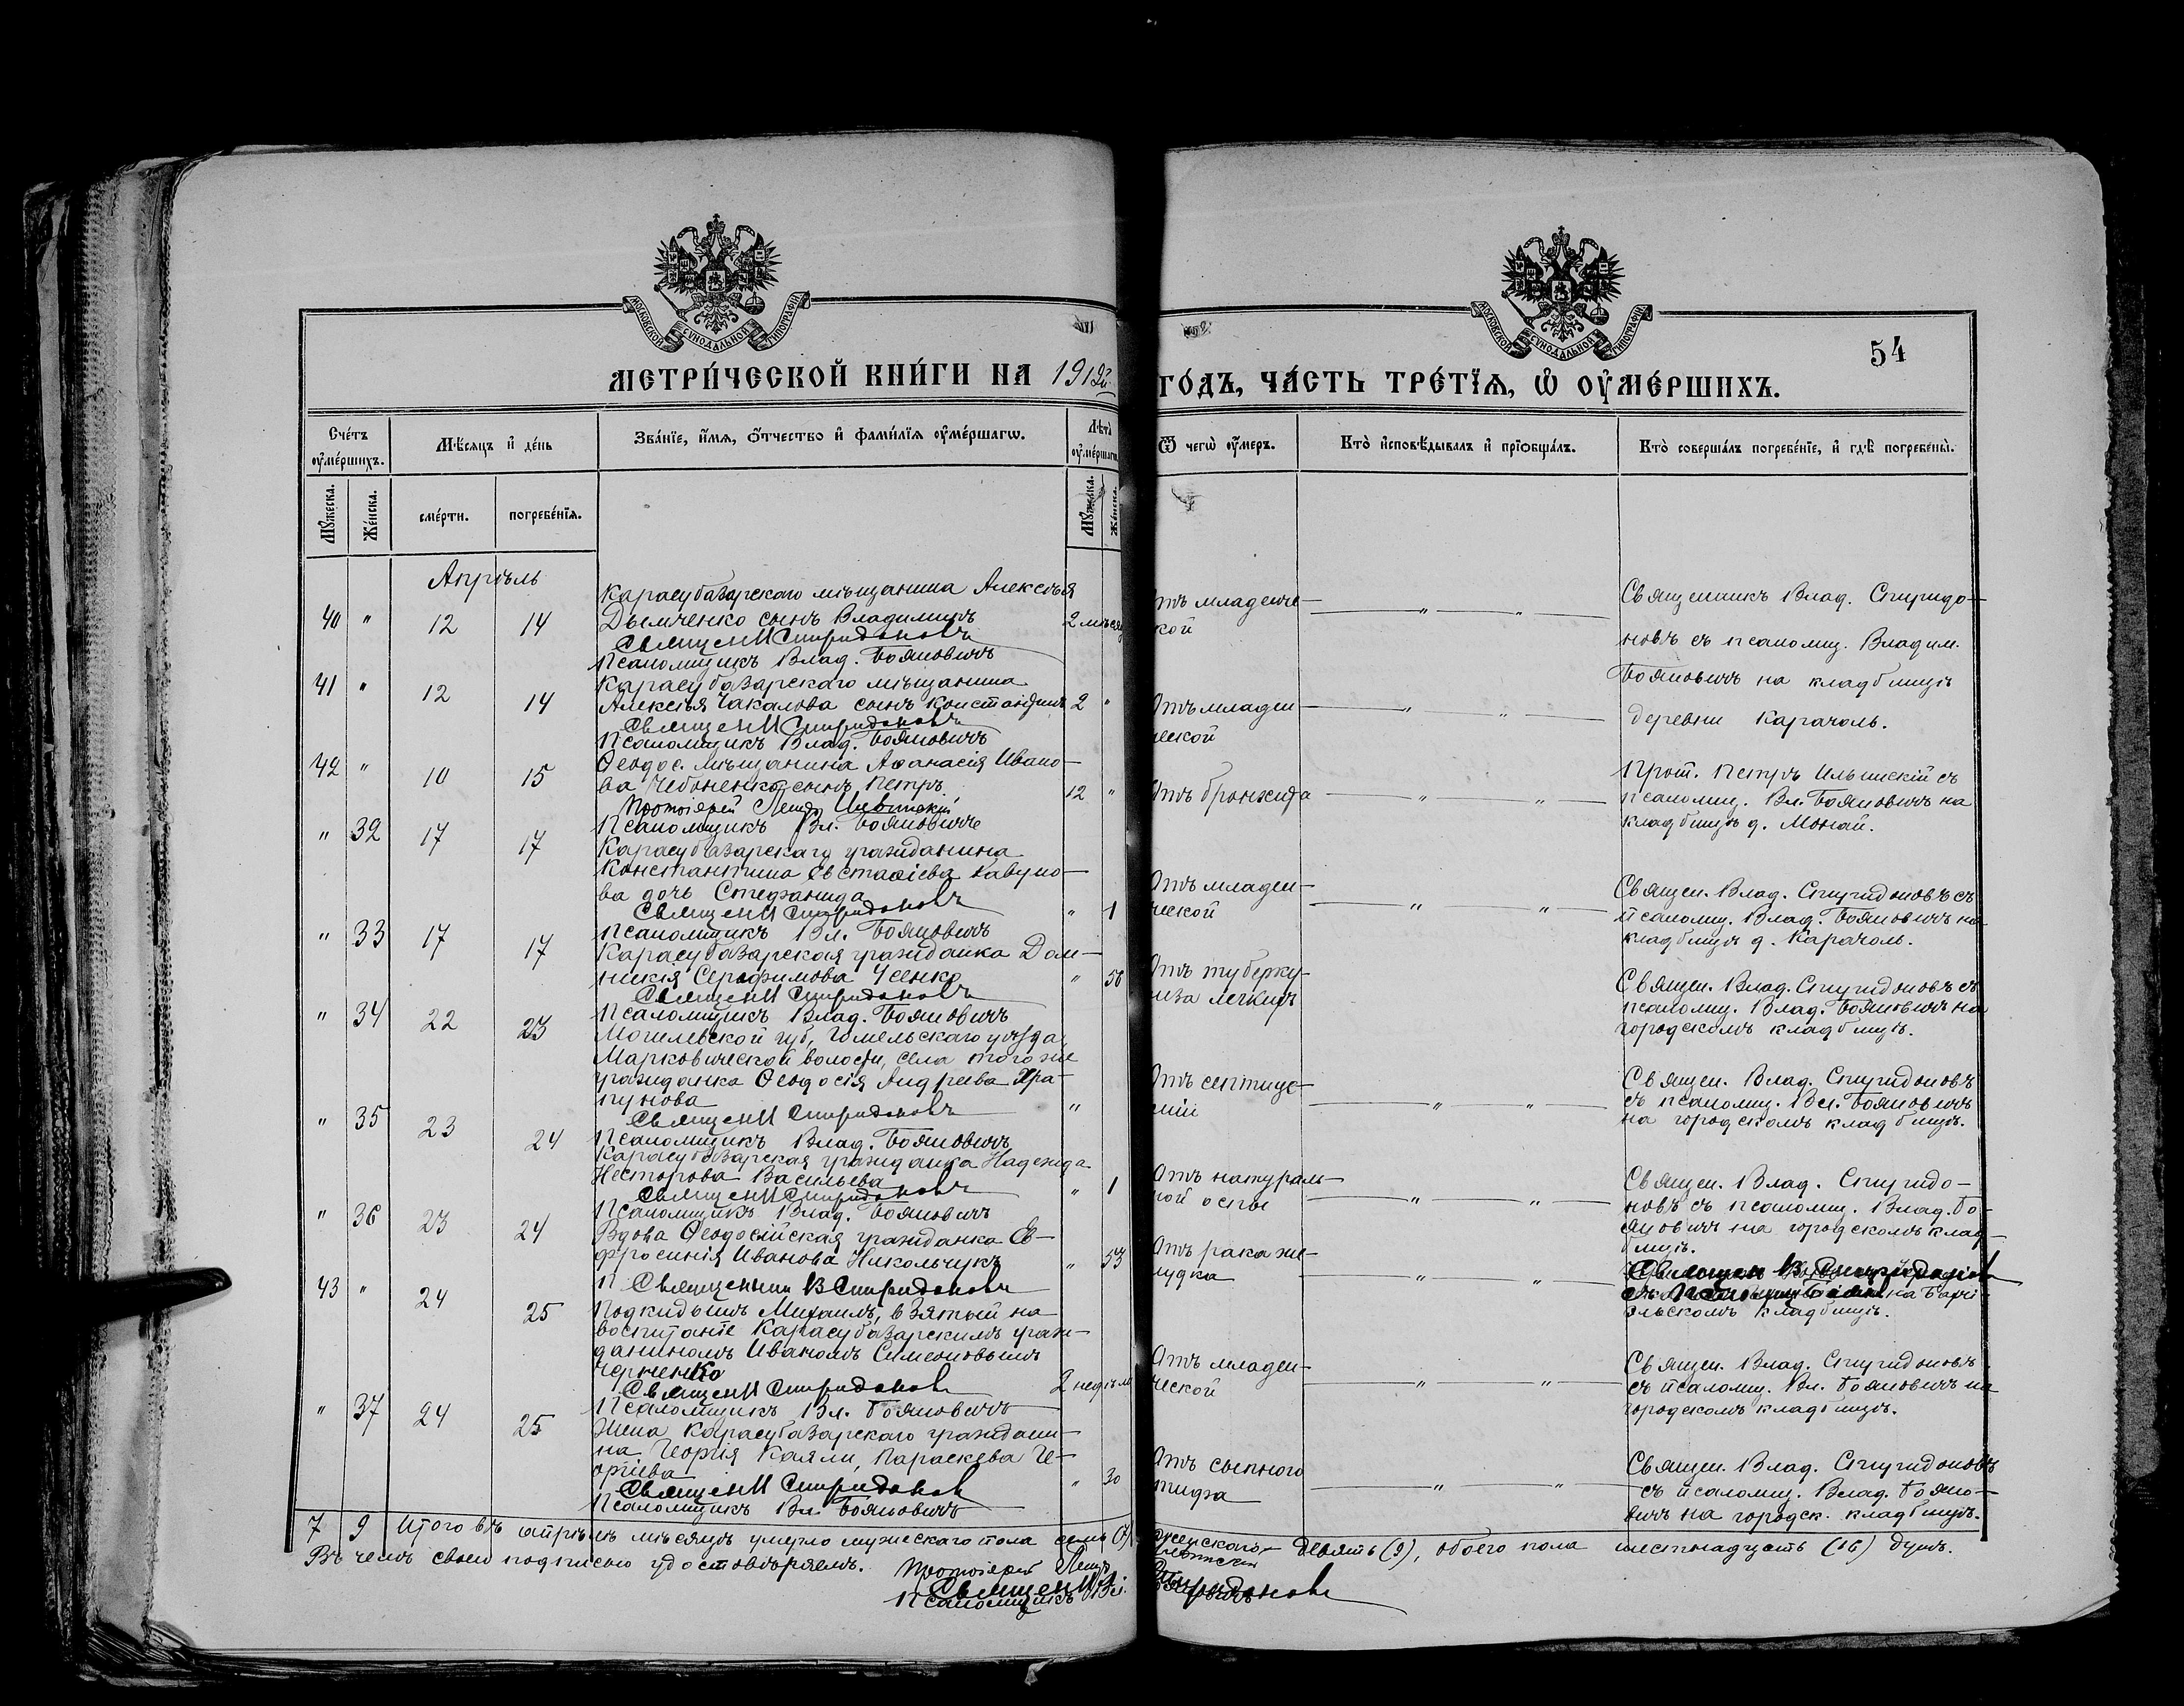 МОСКОВСКОЙ СѴНОДАЛЬНОЙ ТИПОГРАФІИ
МОСКОВСКОЙ СѴНОДАЛЬНОЙ ТИПОГРАФІИ
54
МЕТРИ́ЧЕСКОЙ КНИ́ГИ НА 1912й
ГО́ДЪ, ЧА́СТЬ ТРЕ́ТЇѦ, Ѡ҆ ОУ҆МЕ́РШИХЪ.
Сче́тъ оу҆ме́ршихъ.
Мѣ́сяцъ и҆ де́нь
Зва́нїе, и҆́мя, ѻ҆́тчество и҆ фами́лїя оу҆ме́ршагѡ.
Лѣ́та оу҆ме́ршагѡ
Ѿ чегѡ̀ оу҆́меръ.
Кто̀ и҆сповѣ́дывалъ и҆ прїѡбща́лъ.
Кто̀ соверша́лъ погребе́нїе, и҆ гдѣ̀ погребены̀.
Му́жеска.
Же́нска.
сме́рти.
погребе́нїя.
Му́жеска.
Же́нска.
Апрѣль
40 " 12 14
Карасубазарскаго мѣщанина Алексѣя
Дымченко сынъ Владимиръ
2 мѣсяц
Священн Спиридоновъ
Псаломщикъ Влад. Бояновичъ
тъ младенче-
кой
Священникъ Влад. Спиридо-
новъ съ псаломщ. Владим.
Бояновичъ на кладбищѣ
деревни Карачоль.
41 " 12 14
Карасубазарскаго мѣщанина
Алексѣя Чакалова сынъ Константинъ
2 "
Священн Спиридоновъ
Псаломщикъ Влад. Бояновичъ
Отъ младен-
ческой
42 " 10 15
Ѳеодос. мѣщанина Аѳанасія Ивано-
ва Чебоненко сынъ Петръ.
12 "
Протоіерей Петръ Ильинскій
Псаломщикъ Вл. Бояновичъ
Отъ бронхита
Прот. Петръ Ильинскій съ
псаломщ. Вл. Бояновичъ на
кладбищѣ д. Монай.
" 32 17 17
Карасубазарскаго гражданина
Константина Евстаѳіева Кавуно-
ва дочь Стефанида
" 1
Священн Спиридоновъ
Псаломщикъ Вл. Бояновичъ
Отъ младен-
ческой
Священ. Влад. Спиридоновъ съ
псаломщ. Влад. Бояновичъ на
кладбищѣ д. Карачоль.
" 33 17 17
Карасубазарская гражданка Дом-
никія Серафимова Усенко
"
Священн Спиридоновъ
Псаломщикъ Влад. Бояновичъ
Отъ туберку-
леза легкихъ
Священ. Влад. Спиридоновъ съ
псаломщ. Влад. Бояновичъ на
городскомъ кладбищѣ.
" 34 22 23
Могилевской губ, Гомельскаго уѣзда,
Марковической волости, села того же
гражданка Ѳеодосія Андреева Хра-
пунова
"
Священн Спиридоновъ
Псаломщикъ Влад. Бояновичъ
Отъ септице-
міи
Священ. Влад. Спиридоновъ
съ псаломщ. Вл. Бояновичъ
на городскомъ кладбищѣ.
" 35 23 24
Карасубазарская гражданка Надежда
Несторова Васильева
" 1
Священн Спиридоновъ
Псаломщикъ Влад. Бояновичъ
Отъ натураль-
ной оспы
Священ. Влад. Спиридо-
новъ съ псаломщ. Влад. Бо-
яновичъ на городскомъ клад-
бищѣ.
" 36 23 24
Вдова Ѳеодосійская гражданка Ев-
фросинія Иванова Никольчукъ
" 53
Священникъ В Спиридоновъ
Отъ рака же-
лудка
Священ В. Спиридонов
на
кладбищѣ.
43 " 24 25
Подкидышъ Михаилъ, взятый на
воспитаніе Карасубазарскимъ граж-
даниномъ Иваномъ Симеоновымъ
Черненко
2 недѣли
Священн Спиридонов
Псаломщикъ Вл. Бояновичъ
Отъ младен-
ческой
Священ. Влад. Спиридоновъ
съ псаломщ. Вл. Бояновичъ на
городскомъ кладбищѣ.
" 37 24 25
Жена Карасубазарскаго граждани-
на Георгія Каяли, Параскева Ге-
оргіева
" 30
Священн Спиридонов
Псаломщикъ Вл. Бояновичъ
Отъ сыпного
тифа
Священ. Влад. Спиридоновъ
съ псаломщ. Влад. Бояно-
вичъ на городск. кладбищѣ.
7 9 Итого въ апрѣлѣ мѣсяцѣ умерло мужескаго пола семь (7) женскаго девять (9), обоего пола шестнадцать (16) душъ.
Въ чемъ своею подписью удостовѣряемъ.
Протоіерей Петръ
Священн Спиридонов
Псаломщикъ Вл.